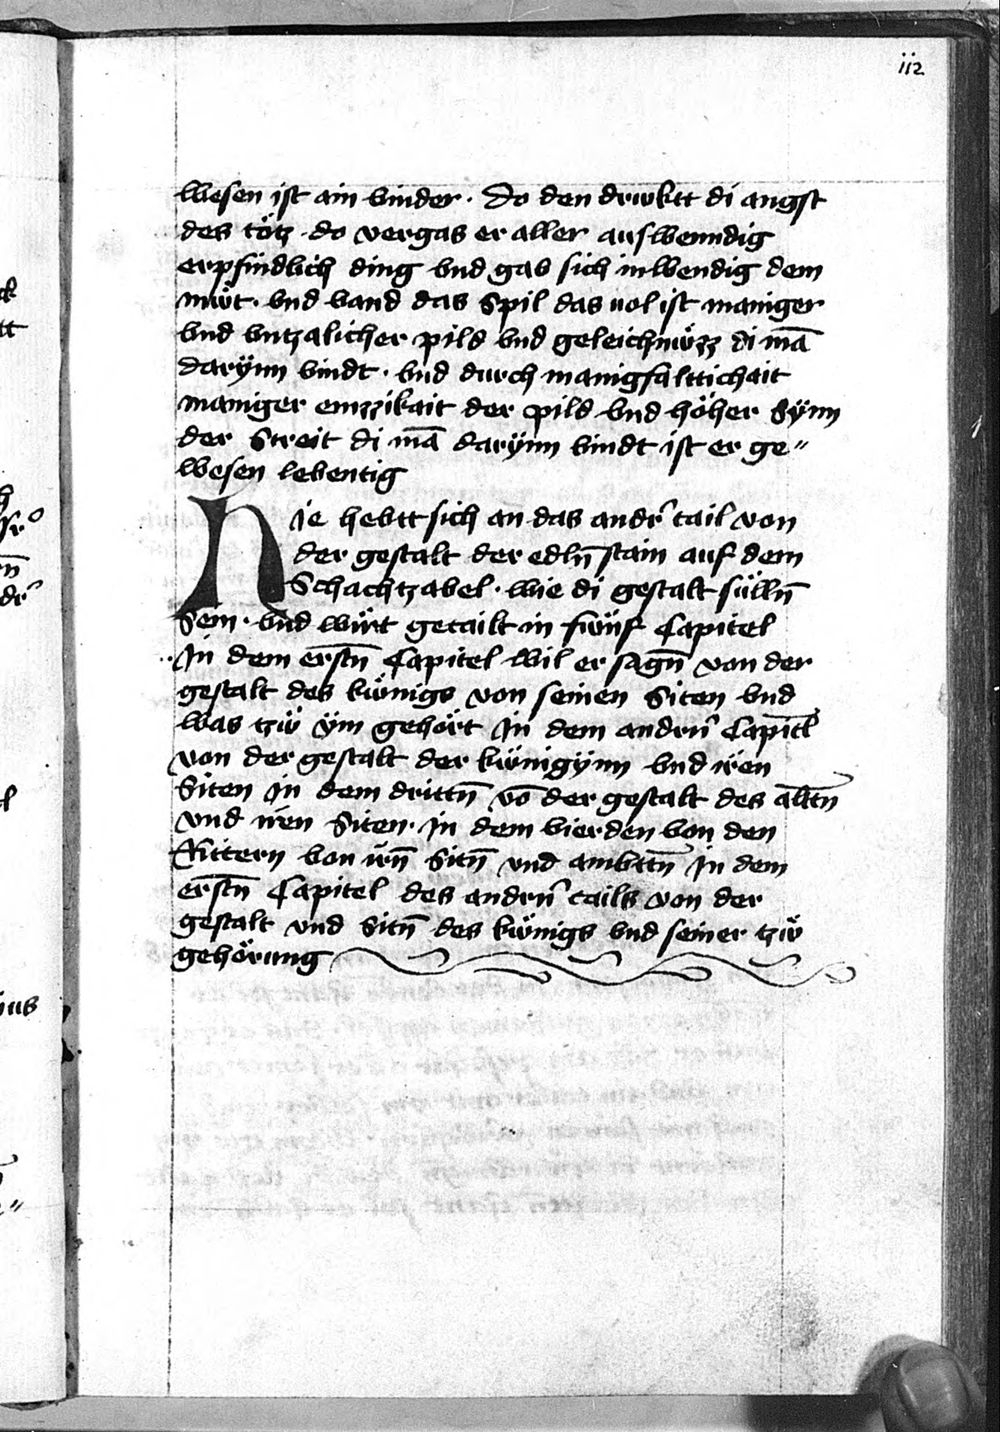 112
wesen ist ain vinder · Do den drwktt di angst
des tötz · do vergas er aller auswenndig
enpfindlich ding vnd gab sich inwendig dem
müt · vnd vand das Spil das vol ist maniger
vnd vntzalicher pild vnd geleichnüzz di mā
darÿnn vindt · vnd durch manigfalttichait
maniger emzzikait der pild vnd höher Sÿnn
der Streit di mā darÿnn vindt ist er ge„
wesen lebentig
Hie hebtt sich an das andr̄ tail von
der gestalt der edln̄ stain auf dem
Schachtzabel · wie di gestalt sülln̄
Sein · vnd wirt getailt in fwnf Capitel
In dem erstn̄ Capitel wil er sagn̄ von der
gestalt des kwnigs von seinen Siten vnd
was tzw ÿm gehört In dem andrn̄ Capitl̄
von der gestalt der kwnigÿnn vnd iren
Siten in dem drittn̄ vō der gestalt des altn̄
vnd iren Siten · in dem vierden von den
Rittern von irn̄ Sitn̄ vnd ambttn̄ In dem
erstn̄ Capitel des andrn̄ tails von der
gestalt vnd Sitn̄ des kwnigs vnd seiner tzw
gehörung